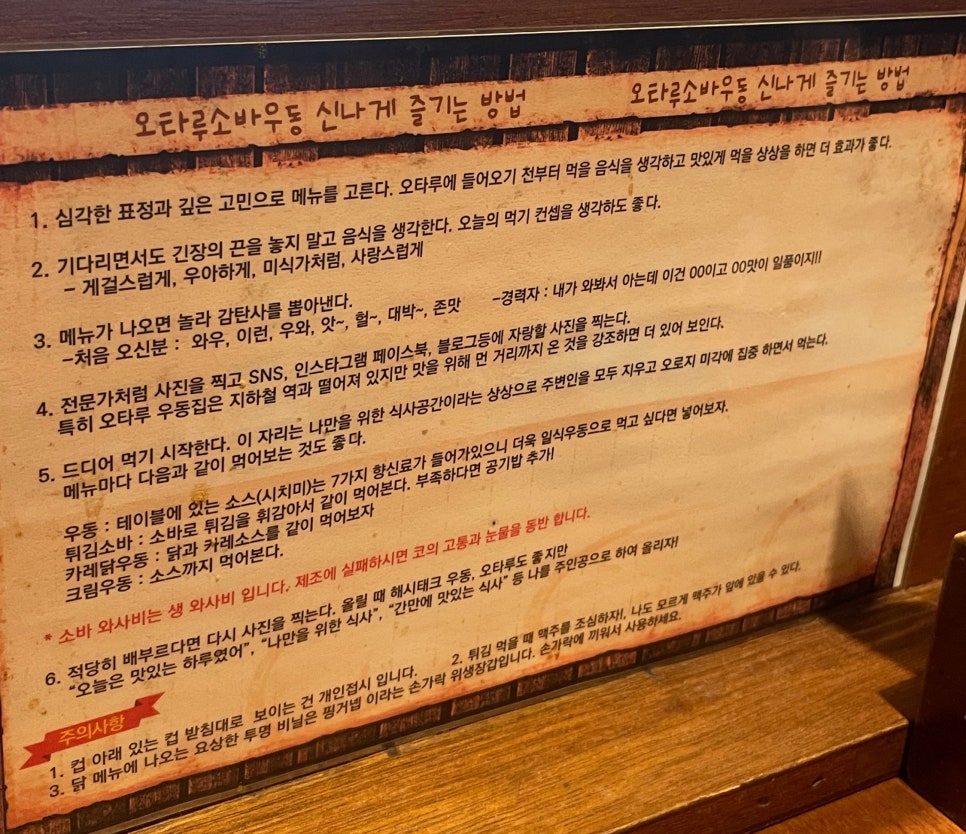 오타루소바우동 신나게 즐기는 방법
오타루소바우동 신나게 즐기는 방법
1. 심각한 표정과 깊은 고민으로 메뉴를 고른다. 오타루에 들어오기 천부터 먹을 음식을 생각하고 맛있게 먹을 상상을 하면 더 효과가 좋다.
2. 기다리면서도 긴장의 끈을 놓지 말고 음식을 생각한다. 오늘의 먹기 컨셉을 생각하도 좋다.
- 게걸스럽게, 우아하게, 미식가처럼, 사랑스럽게
3. 메뉴가 나오면 놀라 감탄사를 뽑아낸다.
-처음 오신분 : 와우, 이런, 우와, 앗~, 헐~, 대박~, 존맛 -경력자 : 내가 와봐서 아는데 이건 00이고 00맛이 일품이지!!
4. 전문가처럼 사진을 찍고 SNS, 인스타그램 페이스북, 블로그등에 자랑할 사진을 찍는다.
특히 오타루 우동집은 지하철 역과 떨어져 있지만 맛을 위해 먼 거리까지 온 것을 강조하면 더 있어 보인다.
5. 드디어 먹기 시작한다. 이 자리는 나만을 위한 식사공간이라는 상상으로 주변인을 모두 지우고 오로지 미각에 집중 하면서 먹는다.
메뉴마다 다음과 같이 먹어보는 것도 좋다.
우동 : 테이블에 있는 소스(시치미)는 7가지 향신료가 들어가있으니 더욱 일식우동으로 먹고 싶다면 넣어보자.
튀김소바 : 소바로 튀김을 휘감아서 같이 먹어본다. 부족하다면 공기밥 추가!
카레닭우동 : 닭과 카레소스를 같이 먹어보자
크림우동 : 소스까지 먹어본다.
* 소바 와사비는 생 와사비 입니다. 제조에 실패하시면 코의 고통과 눈물을 동반 합니다.
6. 적당히 배부르다면 다시 사진을 찍는다. 올릴 때 해시태크 우동, 오타루도 좋지만
"오늘은 맛있는 하루였어", "나만을 위한 식사", "간만에 맛있는 식사" 등 나를 주인공으로 하여 올리자!
주의사항
1. 컵 아래 있는 컵 받침대로 보이는 건 개인접시 입니다. 2. 튀김 먹을 때 맥주를 조심하자!, 나도 모르게 맥주가 앞에 있을 수 있다.
3. 닭 메뉴에 나오는 요상한 투명 비닐은 핑거넵 이라는 손가락 위생장갑입니다. 손가락에 끼워서 사용하세요.